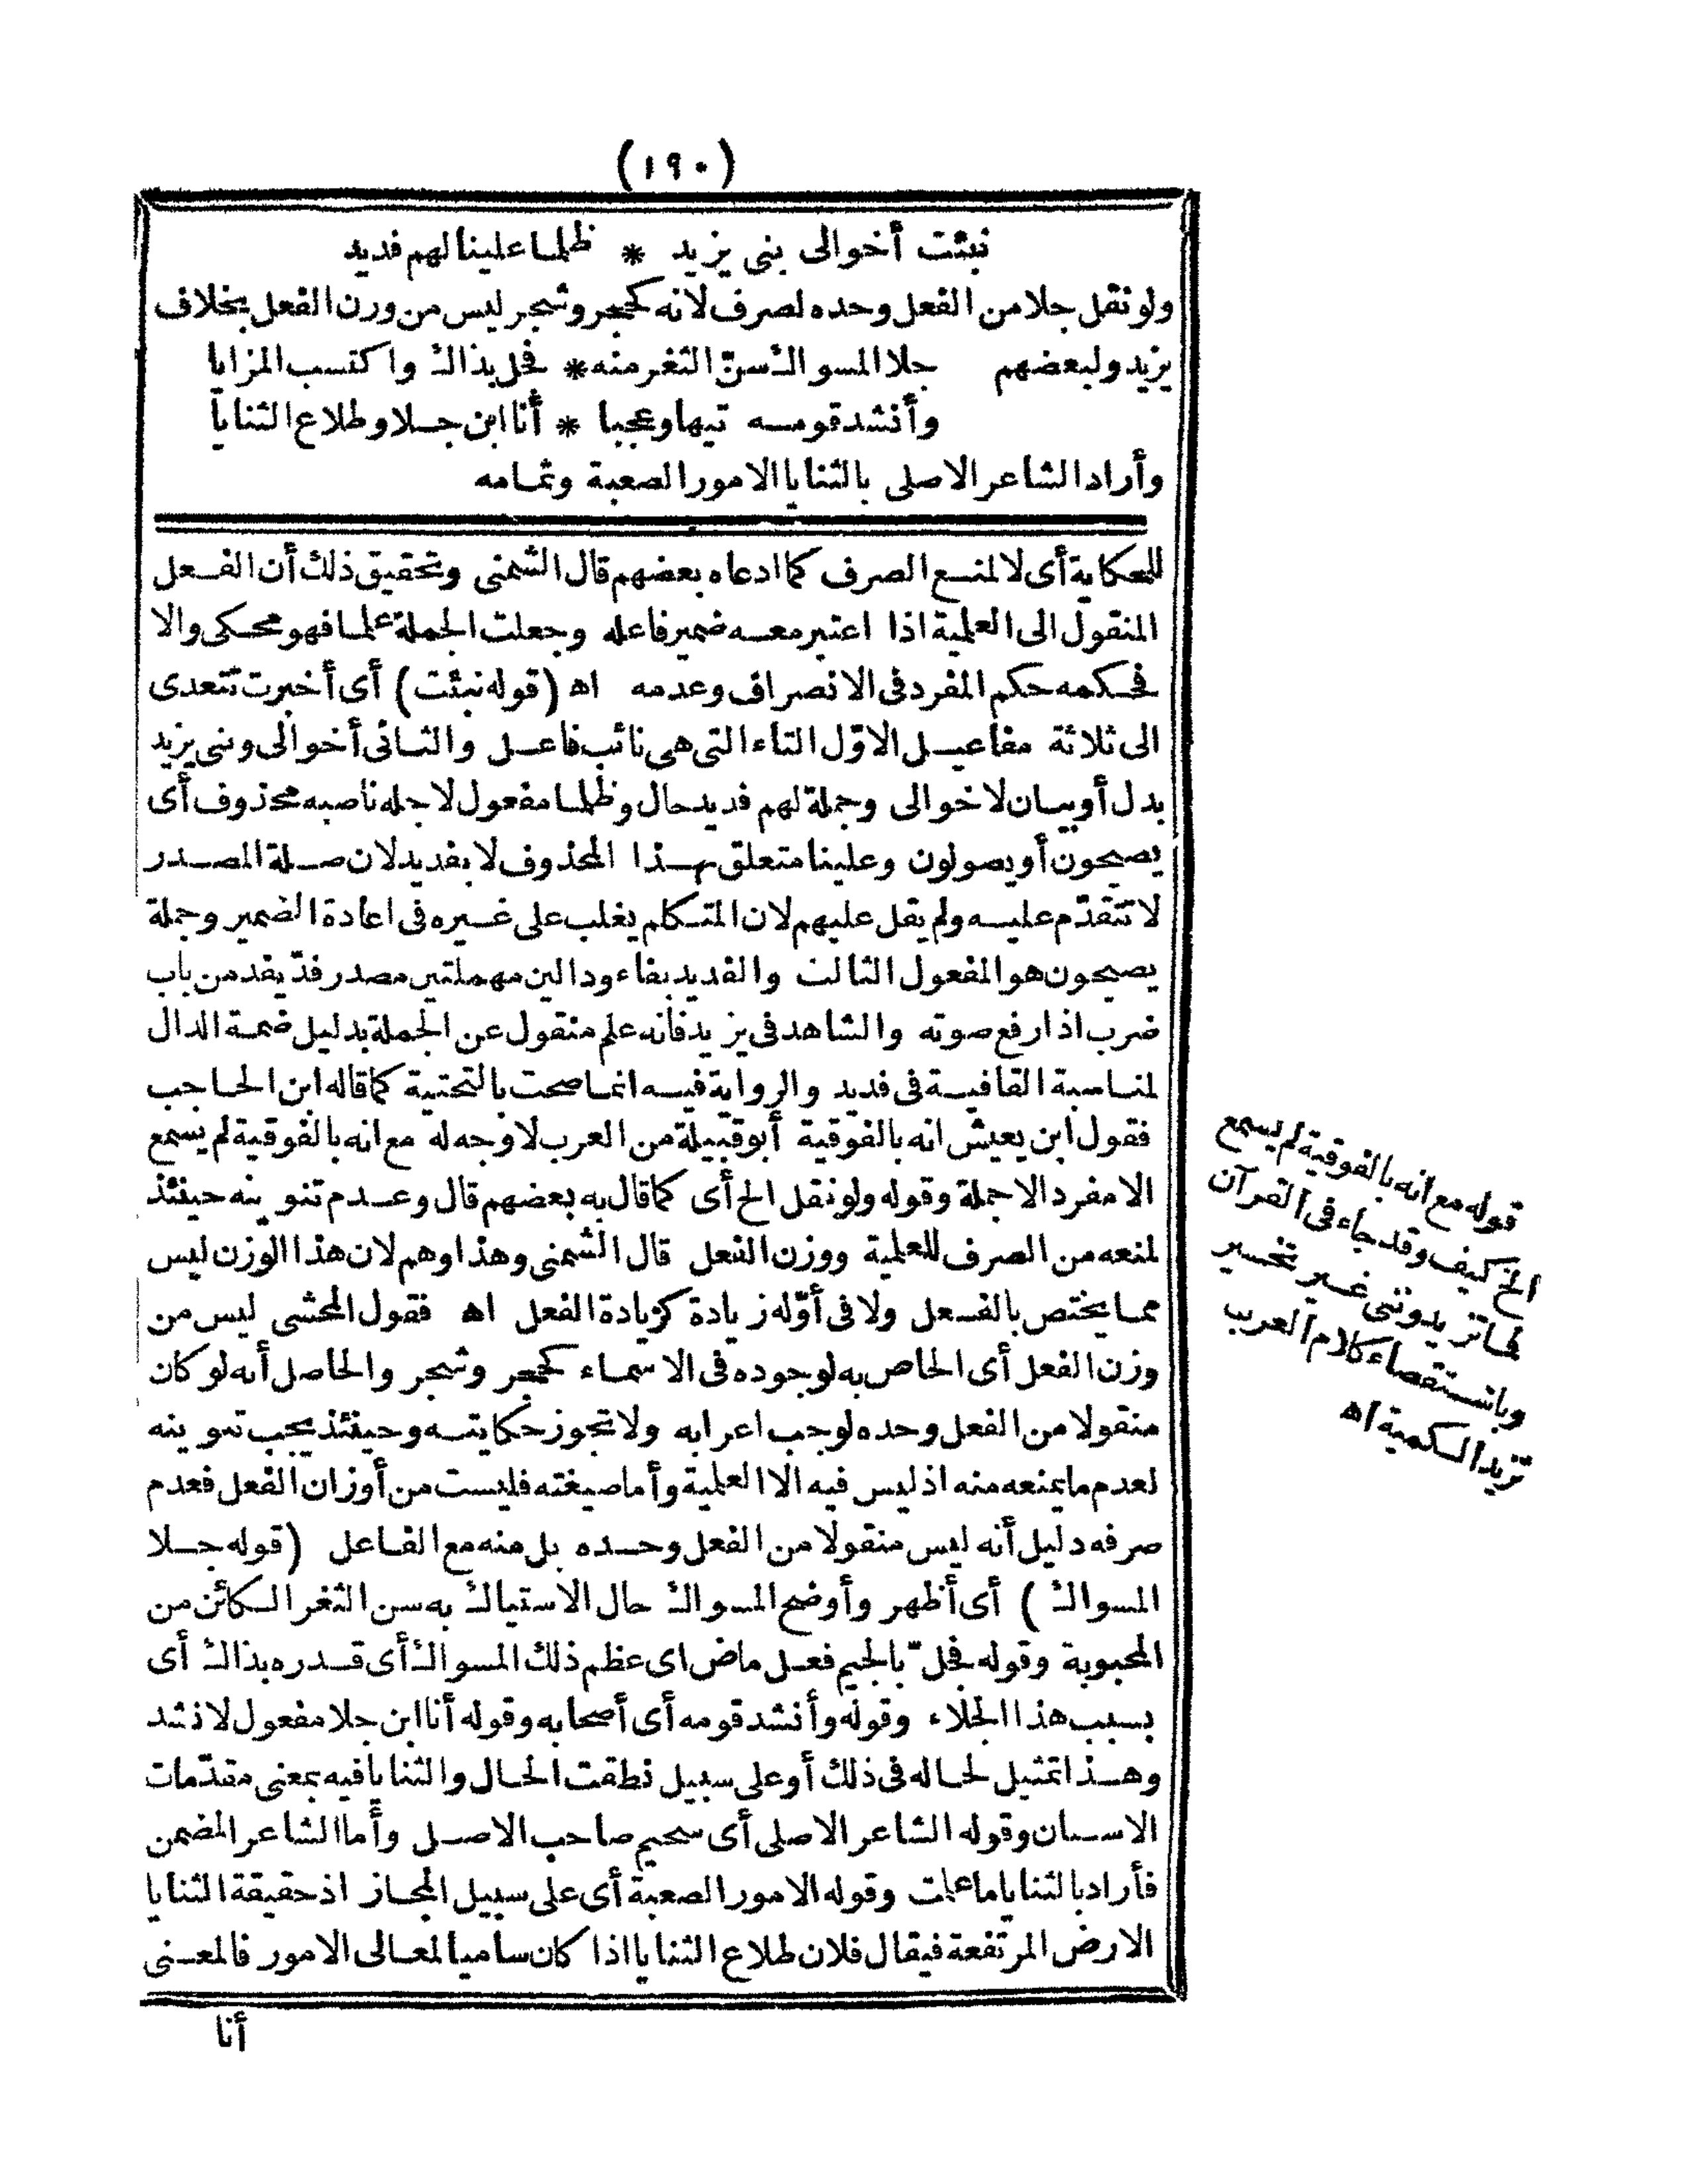 (١٩٠)
نبئت أخوالى بنى يزيد * ظلما علينا لهم فديد
ولو نقل جلا من الفعل وحده لصرف لانه كحجر وشجر ليس من وزن الفعل بخلاف
يزيد ولبعضهم جلا المسواك سنّ الثغر منه * فجل بذاك واكتسب المزايا
وأنشد قومه تيها وعجبا * أنا ابن جلا وطلاع الثنايا
وأراد الشاعر الاصلى بالثنايا الامور الصعبة وتمامه
للحكاية أى لا لمنع الصرف كما ادعاه بعضهم قال الشمنى وتحقيق ذلك أن الفعل
المنقول الى العلمية اذا اعتبر معه ضمير فاعله وجعلت الجملة علما فهو محكى والا
فحكمه حكم المفرد فى الانصراف وعدمه اه (قوله نبئت) أى أخبرت تتعدى
الى ثلاثة مفاعيل الاوّل التاء التى هى نائب فاعل والثانى أخوالى وبنى يزيد
بدل أو بيان لاخوالى وجملة لهم فديد حال وظلما مفعول لاجله ناصبه محذوف أى
يصيحون أو يصولون وعلينا متعلق بهذا المحذوف لا بفديد لان صلة المصدر
لا تتقدّم عليه ولم يقل عليهم لان المتكلم يغلب على غيره فى اعادة الضمير وجملة
يصيحون هو المفعول الثالث والفديد بفاء ودالين مهملتين مصدر فدّ يفد من باب
ضرب اذا رفع صوته والشاهد فى يزيد فانه علم منقول عن الجملة بدليل ضمة الدال
لمناسبة القافية فى فديد والرواية فيه انما صحت بالتحتية كما قاله ابن الحاجب
فقول ابن يعيش انه بالفوقية أبو قبيلة من العرب لا وجه له مع انه بالفوقية لم يسمع
الا مفردا لا جملة وقوله ولو نقل الخ أى كما قال به بعضهم قال وعدم تنوينه حينئذ
لمنعه من الصرف للعلمية ووزن الفعل قال الشمنى وهذا وهم لان هذا الوزن ليس
مما يختص بالفعل ولا فى أوّله زيادة كزيادة الفعل اه فقول المحشى ليس من
وزن الفعل أى الخاص به لوجوده فى الاسماء كحجر وشجر والحاصل أنه لو كان
منقولا من الفعل وحده لوجب اعرابه ولا تجوز حكايته وحينئذ يجب تنوينه
لعدم ما يمنعه منه اذ ليس فيه الا العلمية وأما صيغته فليست من أوزان الفعل فعدم
صرفه دليل أنه ليس منقولا من الفعل وحده بل منه مع الفاعل (قوله جلا
المسواك) أى أظهر وأوضح المسواك حال الاستياك به سن الثغر الكائن من
المحبوبة وقوله فجلّ بالجيم فعل ماض اى عظم ذلك المسواك أى قدره بذاك أى
بسبب هذا الجلاء وقوله وأنشد قومه أى أصحابه وقوله أنا ابن جلا مفعول لانشد
وهذا تمثيل لحاله فى ذلك أو على سبيل نطقت الحال والثنايا فيه بمعنى مقدّمات
الاسنان وقوله الشاعر الاصلى أى سحيم صاحب الاصل وأما الشاعر المضمن
فأراد بالثنايا ما علمت وقوله الامور الصعبة أى على سبيل المجاز اذ حقيقة الثنايا
الارض المرتفعة فيقال فلان طلاع الثنايا اذا كان ساميا لمعالى الامور فالمعنى
أنا
قوله مع انه بالفوقية لم يسمع
الخ كيف وقد جاء فى القرآن
فما تزيدوننى غير تخسير
وباستقصاء كلام العرب
تزيد الكمية اه